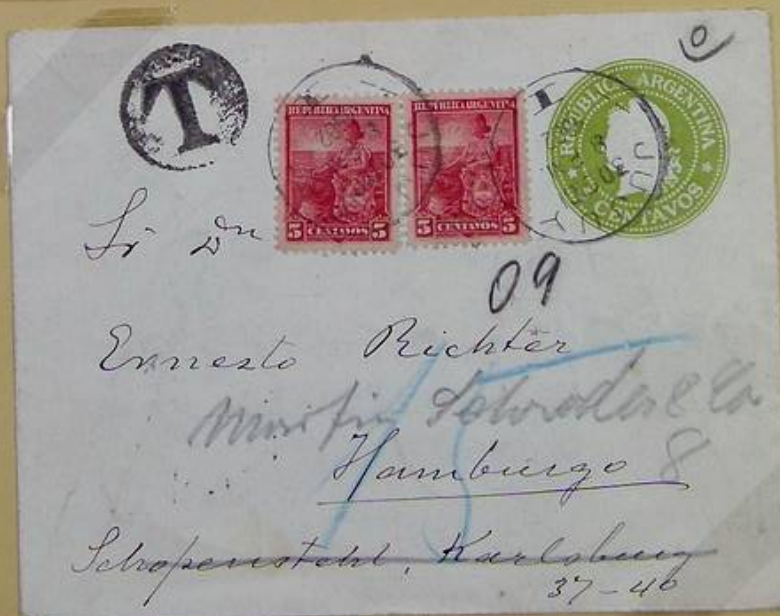 O
T
REPUBLICA ARGENTINA
5 CENTAVOS 5
REPUBLICA ARGENTINA
5 CENTAVOS 5
REPUBLICA ARGENTINA
CENTAVOS
JUJUY
Sr Dn
09
Ernesto Richter
Martin Schroder & Co
Hamburgo 8
15
Schopenstehl, Karlsburg
37-40